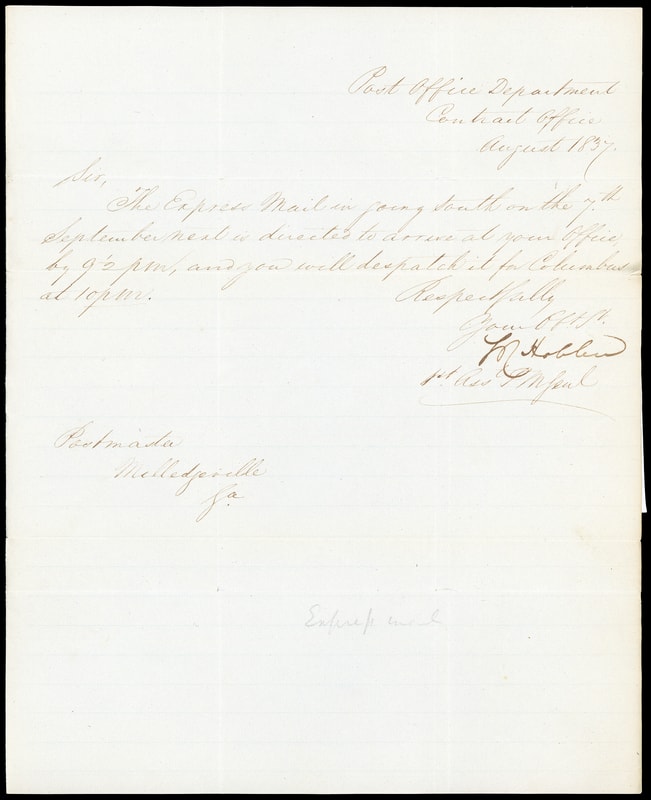 Post Office Department
Contract Office
August 1837.
Sir,
The Express Mail in going South on the 7.th
September next is directed to arrive at your Office,
by 9½ pm, and you will despatch it for Columbus
at 10 pm.
Respectfully
Your Obt St.
S R Hobbie
1st Ass P M Genl
Postmaster
Milledgeville
Ga
Express mail